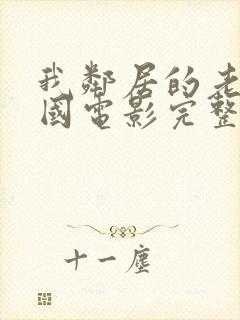 我鄰居的老
國電影完整
十一塵